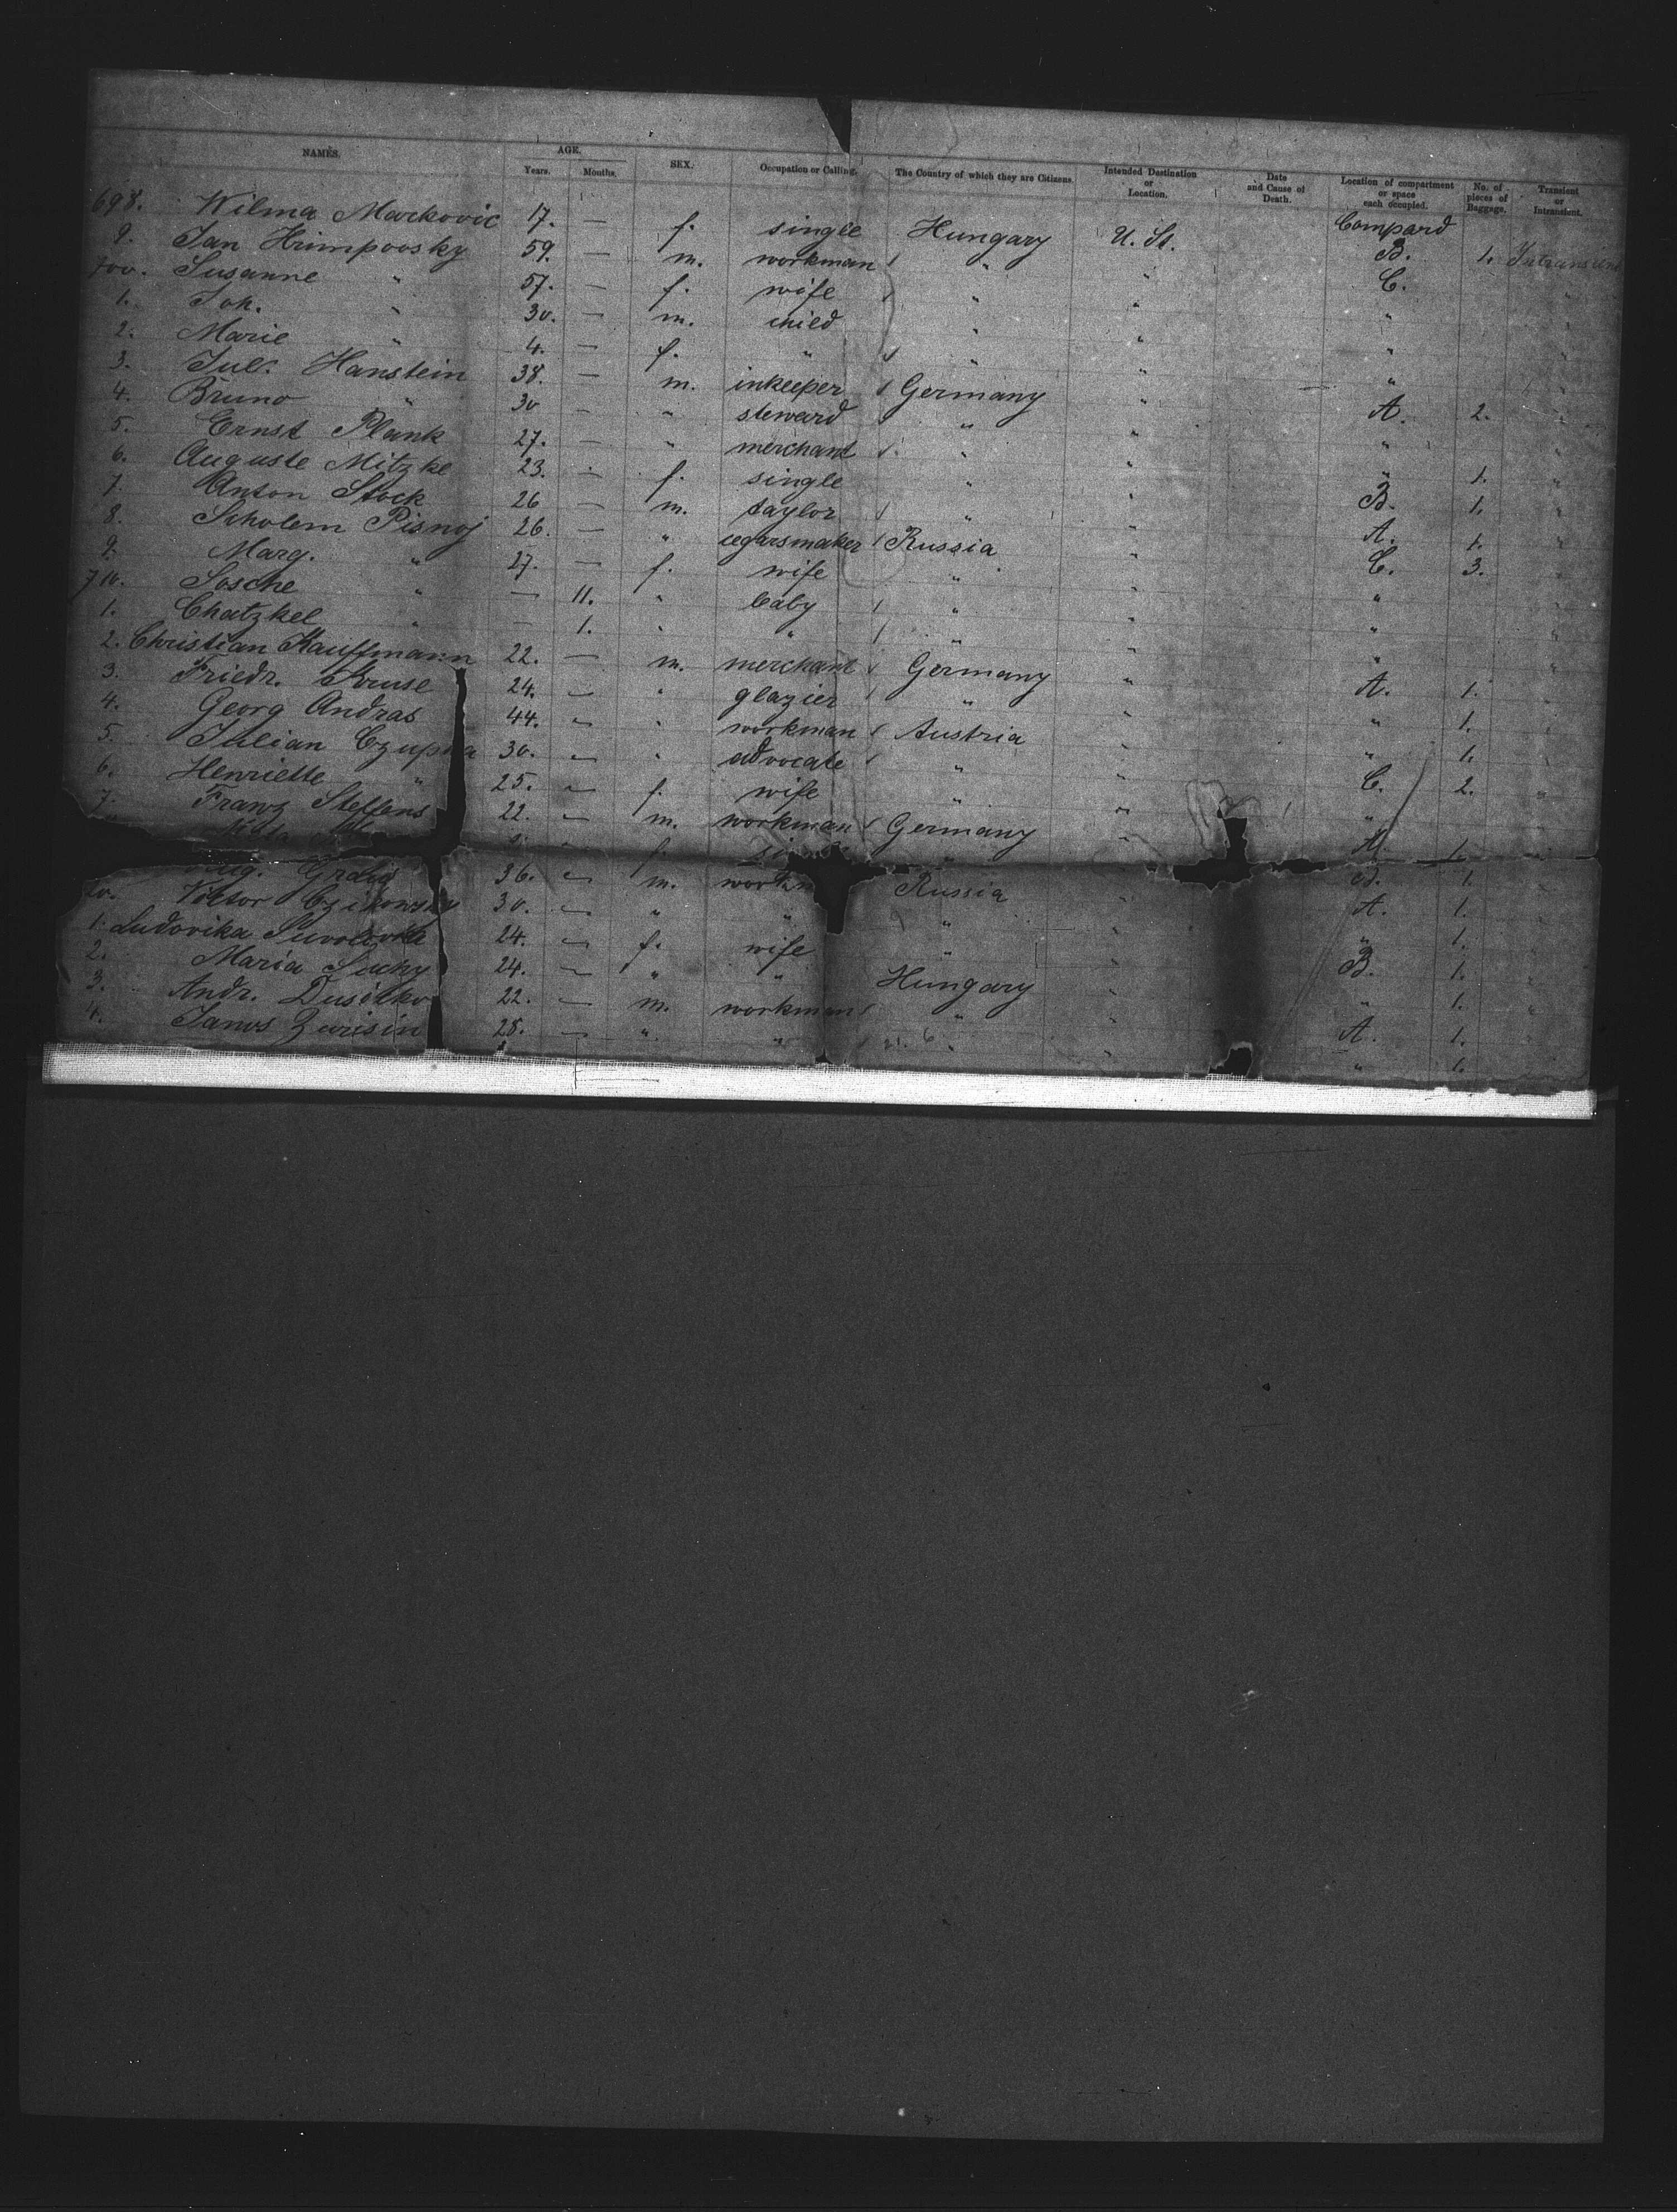 NAMES. AGE. Years. Months. SEX. Occupation or Calling. The Country of which they are Citizens. Intended Destination or Location. Date and Cause of Death. Location of compartment or space each occupied. No. of pieces of Baggage. Transient or Intransient.
698. Wilma Markovic 17. — f. single Hungary U. St. Compard B. 1. Intransient
9. Jan Hrimpovsky 59. — m. workman " " C. "
700. Susanne " 57. — f. wife " " " "
1. Joh. " 30. — m. child " " " "
2. Marie " 4. — f. " " " " "
3. Jul. Hanstein 38. — m. inkeeper Germany " A. 2. "
4. Bruno " 30 — " steward " " " "
5. Ernst Plank 27. — " merchant " " " 1. "
6. Auguste Mitzke 23. — f. single " " B. 1. "
7. Anton Stock 26 — m. taylor " " A. 1. "
8. Scholem Pisnoj 26. — " cegarsmaker Russia " C. 3. "
9. Marg. " 27. — f. wife " " " "
710. Sosche " — 11. " baby " " " "
1. Chatzkel " — 1. " " " " " "
2. Christian Kauffmann 22. — m. merchant Germany " A. 1. "
3. Friedr. Kruse 24. — " glazier " " " 1. "
4. Georg Andras 44. — " workman Austria " " 1. "
5. Julian 30. — " advocate " " C. 2. "
6. Henriette " 25. — f. wife " " " "
7. Franz Steffens 22. — m. workman Germany " A. 1.
f.
36. — m. Russia " 1. "
20. Victor 30. — " " " " A. 1. "
1. Ludovika 24. — f. wife " " " 1. "
2. Maria Suchy 24. — " " Hungary " B. 1. "
3. Andr. Dusitko 22. — m. workman " " " 1. "
4. Janos Zurisin 28. — " " " " A. 1. "
" 1.